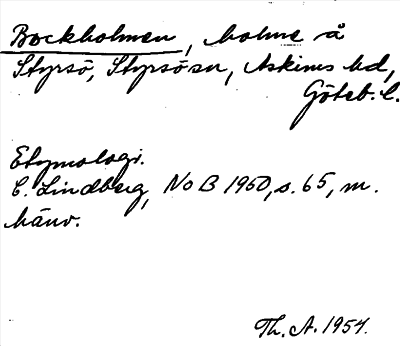 Bockholmen, holme å
Styrsö, Styrsö sn, Askims hd,
Göteb. l.
Etymologi.
C. Lindberg, NoB 1950, s. 65, m.
hänv.
Th. A. 1954.